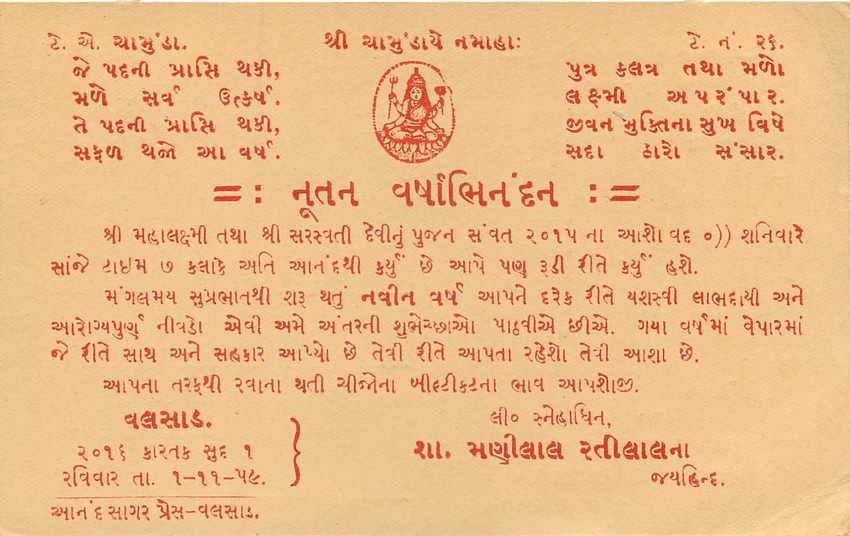 ટે. એ. ચામુંડા. શ્રી ચામુંડાયૈ નમાહાઃ ટે. નં. ૨૬.
જે પદની પ્રાપ્તિ થકી,
મળે સર્વ ઉત્કર્ષ.
તે પદની પ્રાપ્તિ થકી,
સફળ થજો આ વર્ષ.
પુત્ર કલત્ર તથા મળો
લક્ષ્મી અપરંપાર.
જીવન મુક્તિના સુખ વિષે
સદા ઠારો સંસાર.
=: નૂતન વર્ષાભિનંદન :=
શ્રી મહાલક્ષ્મી તથા શ્રી સરસ્વતી દેવીનું પુજન સંવત ૨૦૧૫ ના આશો વદ ૦)) શનિવારે
સાંજે ટાઇમ ૭ કલાકે અતિ આનંદથી કર્યું છે આપે પણ રૂડી રીતે કર્યું હશે.
મંગલમય સુપ્રભાતથી શરૂ થતું નવીન વર્ષ આપને દરેક રીતે યશસ્વી લાભદાયી અને
આરોગ્યપુર્ણ નીવડો એવી અમે અંતરની શુભેચ્છાઓ પાઠવીએ છીએ. ગયા વર્ષમાં વેપારમાં
જે રીતે સાથ અને સહકાર આપ્યો છે તેવી રીતે આપતા રહેશો તેવી આશા છે.
આપના તરફથી રવાના થતી ચીજોના બીલ્ટીકટના ભાવ આપશોજી.
વલસાડ.
૨૦૧૬ કારતક સુદ ૧
રવિવાર તા. ૧-૧૧-૫૯.
લી૦ સ્નેહાધિન,
શા. મણીલાલ રતીલાલના
જયહિન્દ.
આનંદ સાગર પ્રેસ-વલસાડ.